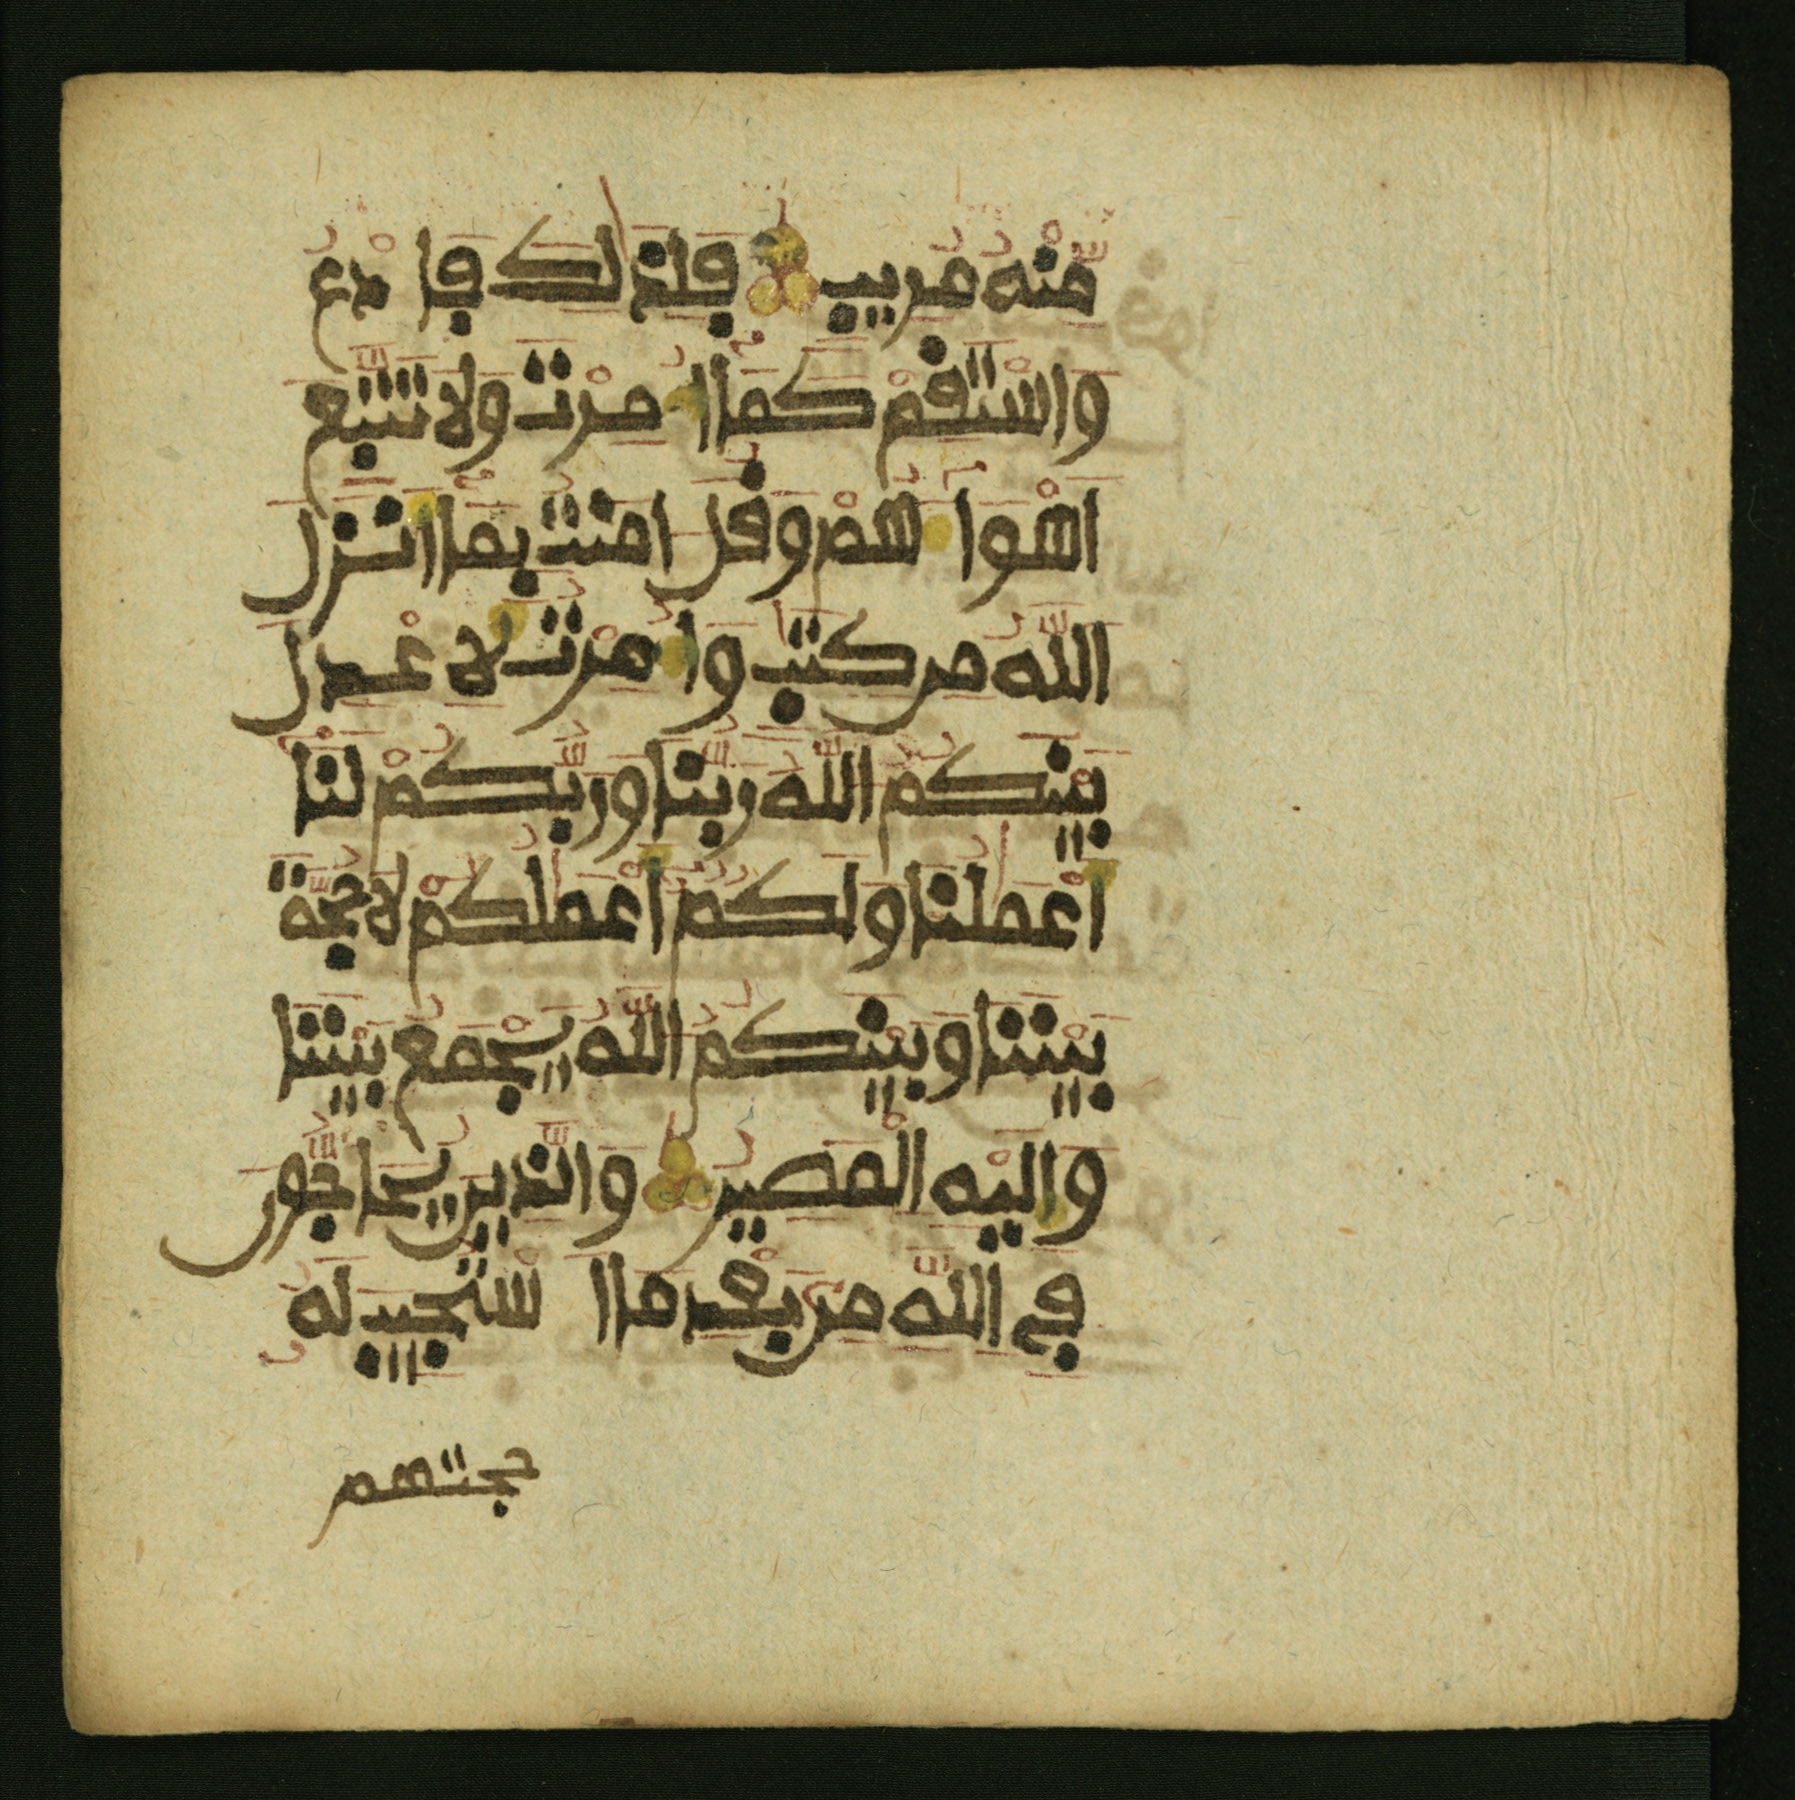 مِّنْهُ مُرِيبٍ فَلِذَٰلِكَ فَادْعُ
وَاسْتَقِمْ كَمَا أُمِرْتَ وَلَا تَتَّبِعْ
أَهْوَاءَهُمْ وَقُلْ ءَامَنتُ بِمَا أَنزَلَ
اللَّهُ مِن كِتَٰبٍ وَأُمِرْتُ لِأَعْدِلَ
بَيْنَكُمُ اللَّهُ رَبُّنَا وَرَبُّكُمْ لَنَا
أَعْمَٰلُنَا وَلَكُمْ أَعْمَٰلُكُمْ لَا حُجَّةَ
بَيْنَنَا وَبَيْنَكُمُ اللَّهُ يَجْمَعُ بَيْنَنَا
وَإِلَيْهِ الْمَصِيرُ وَالَّذِينَ يُحَاجُّونَ
فِي اللَّهِ مِن بَعْدِ مَا اسْتُجِيبَ لَهُ
حجتهم